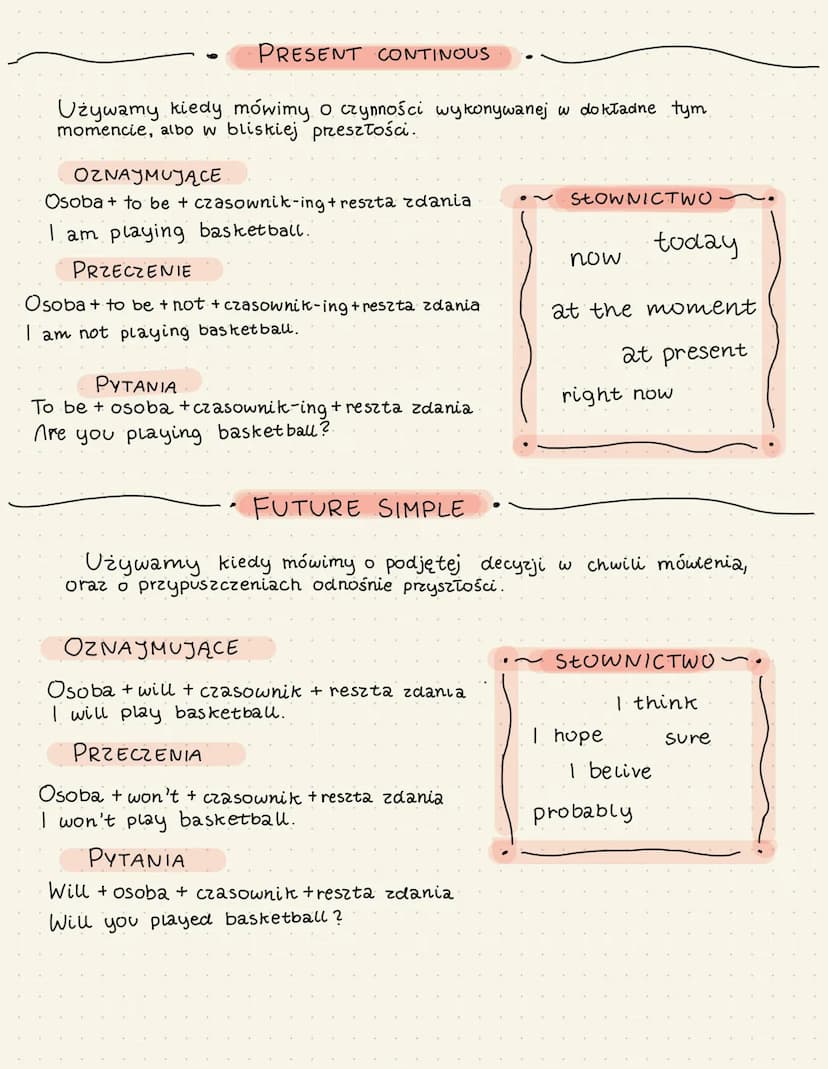 PRESENT CONTINOUS
Używamy kiedy mówimy o czynności wykonywanej w dokładne tym
momencie, albo w bliskiej przeszłości.
OZNAJMUJĄCE
Osoba + to be + czasownik-ing + reszta zdania
I am playing basketball.
PRZECZENIE
Osoba + to be + not + czasownik-ing + reszta zdania
I am not playing basketball.
PYTANIA
To be + osoba + czasownik-ing + reszta zdania
Are you playing basketball?
SŁOWNICTWO
now today
at the moment
at present
right now
FUTURE SIMPLE
Używamy kiedy mówimy o podjętej decyzji w chwili mówienia,
oraz o przypuszczeniach odnośnie przyszłości.
OZNAJMUJĄCE
Osoba + will + czasownik + reszta zdania
I will play basketball.
PRZECZENIA
Osoba + won't + czasownik + reszta zdania
I won't play basketball.
PYTANIA
Will + osoba + czasownik + reszta zdania
Will you played basketball?
SŁOWNICTWO
I think
I hope sure
I belive
probably